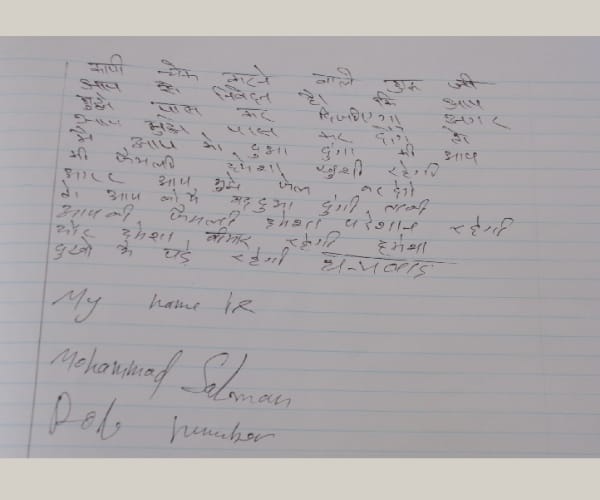 कापी चेक करने वाले गुरू जी
आप से निवेदन है कि आप
मुझे पास कर दिजीएगा अगर
आप मुझे पास कर देंगे तो
मै आप को दुआ दुंगा की आप
की फेमली हमेशा खुशी रहेगी
अगर आप मुझे फेल कर देगे
तो आप को मे बददुआ दुंगी ताकी
आपकी फेमली हमेशा परेशान रहेगी
और हमेशा बीमार रहेगी हमेशा
दुखो मे पडे रहेगी धन्यवाद
My name is
Mohammad Salman
Role number